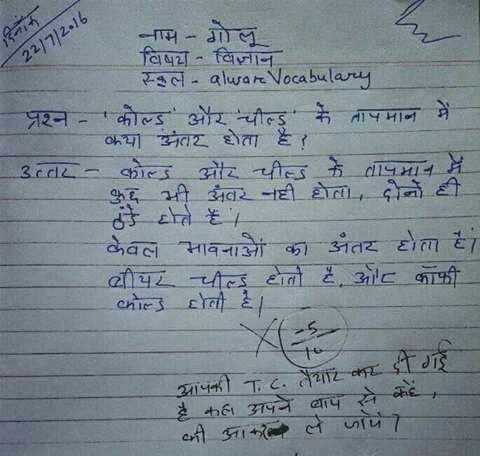 दिनांक
22/7/2016
नाम - गोलू
विषय - विज्ञान
स्कूल - alwareVocabulary
प्रश्न - 'कोल्ड' और 'चील्ड' के तापमान में
क्या अंतर होता है ?
उत्तर - कोल्ड और चील्ड के तापमान में
कुछ भी अंतर नही होता, दोनो ही
ठंडे होते है।
केवल भावनाओं का अंतर होता है।
बीयर चील्ड होती है, और कॉफी
कोल्ड होती है।
-5
10
आपकी T.C. तैयार कर दी गई
है कल अपने बाप से कहें,
की आकर ले जायें।